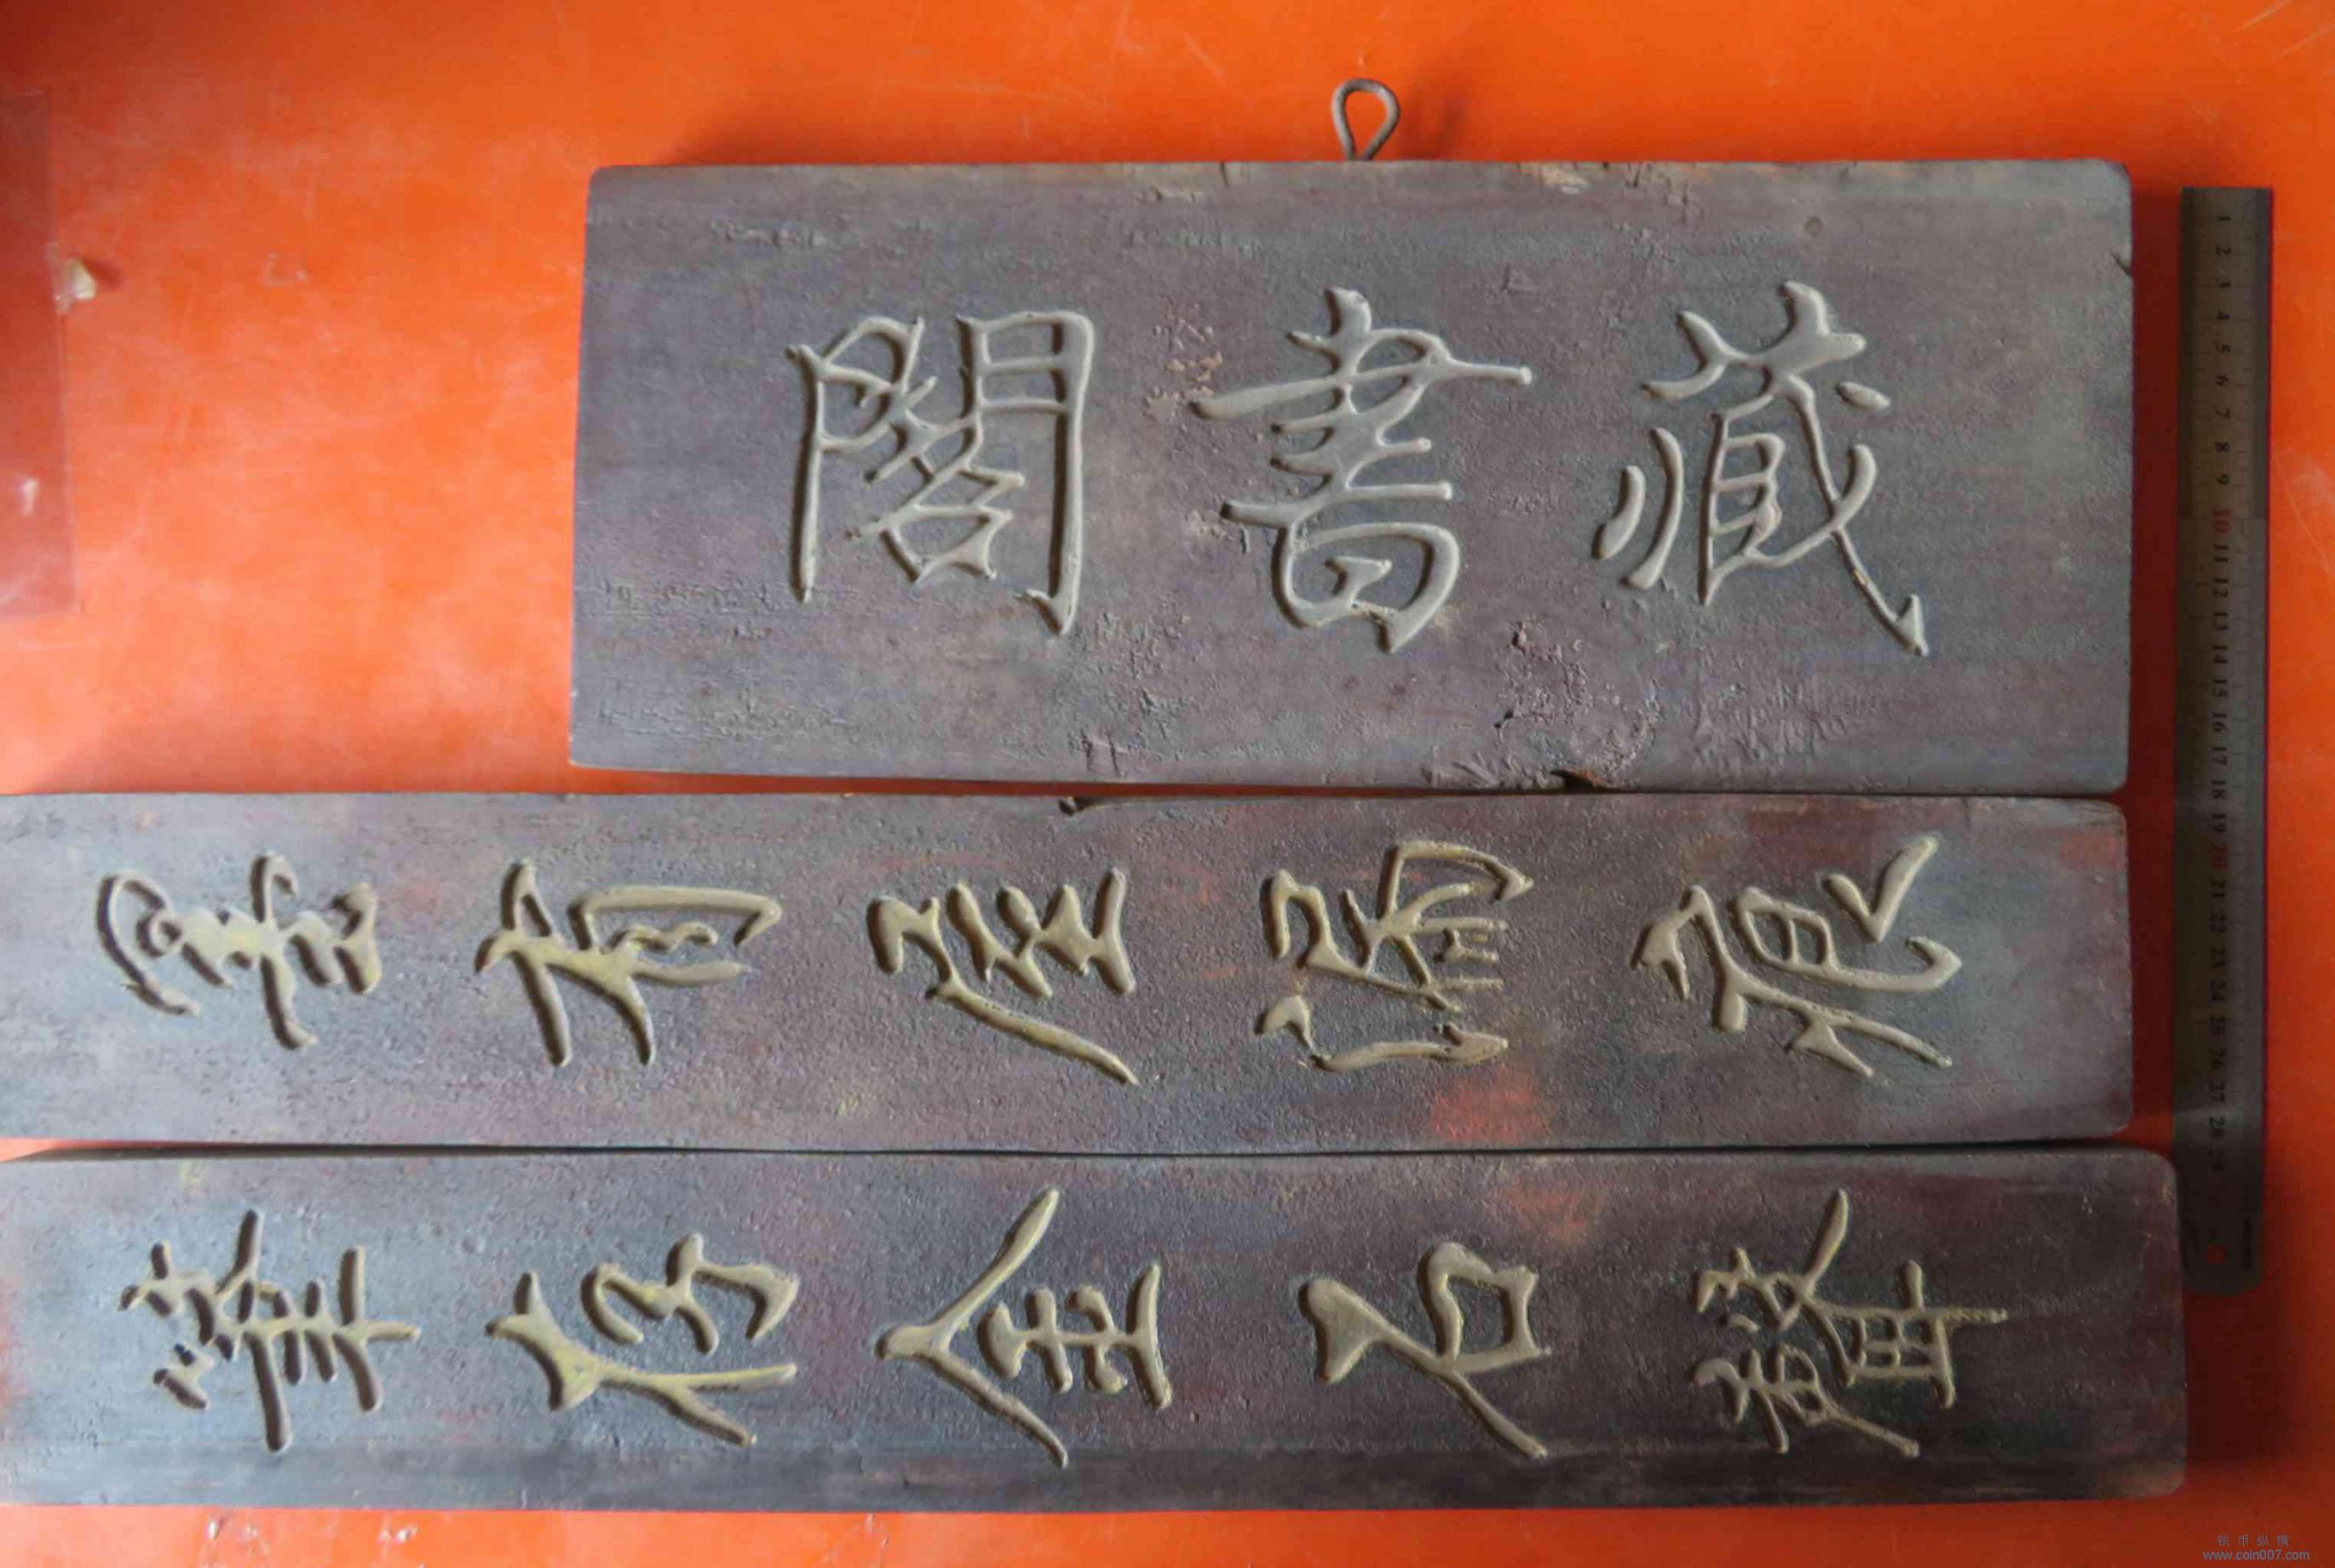 藏書閣
墨有屋漏痕
筆存金石聲
1 2 3 4 5 6 7 8 9 10 11 12 13 14 15 16 17 18 19 20 21 22 23 24 25 26 27 28 29
钱币纵横
www.coin007.com